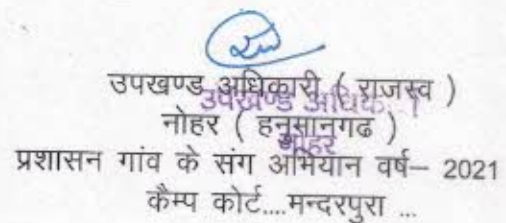 उपखण्ड अधिकारी ( राजस्व )
उपखण्ड
नोहर ( हनुमानगढ )
नोहर
प्रशासन गांव के संग अभियान वर्ष– 2021
कैम्प कोर्ट....मन्दरपुरा ...